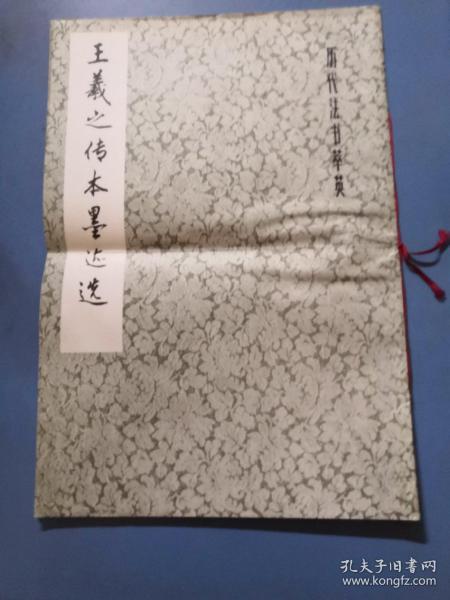 历代法书萃英
王羲之传本墨迹选
孔夫子旧书网
www.kongfz.com